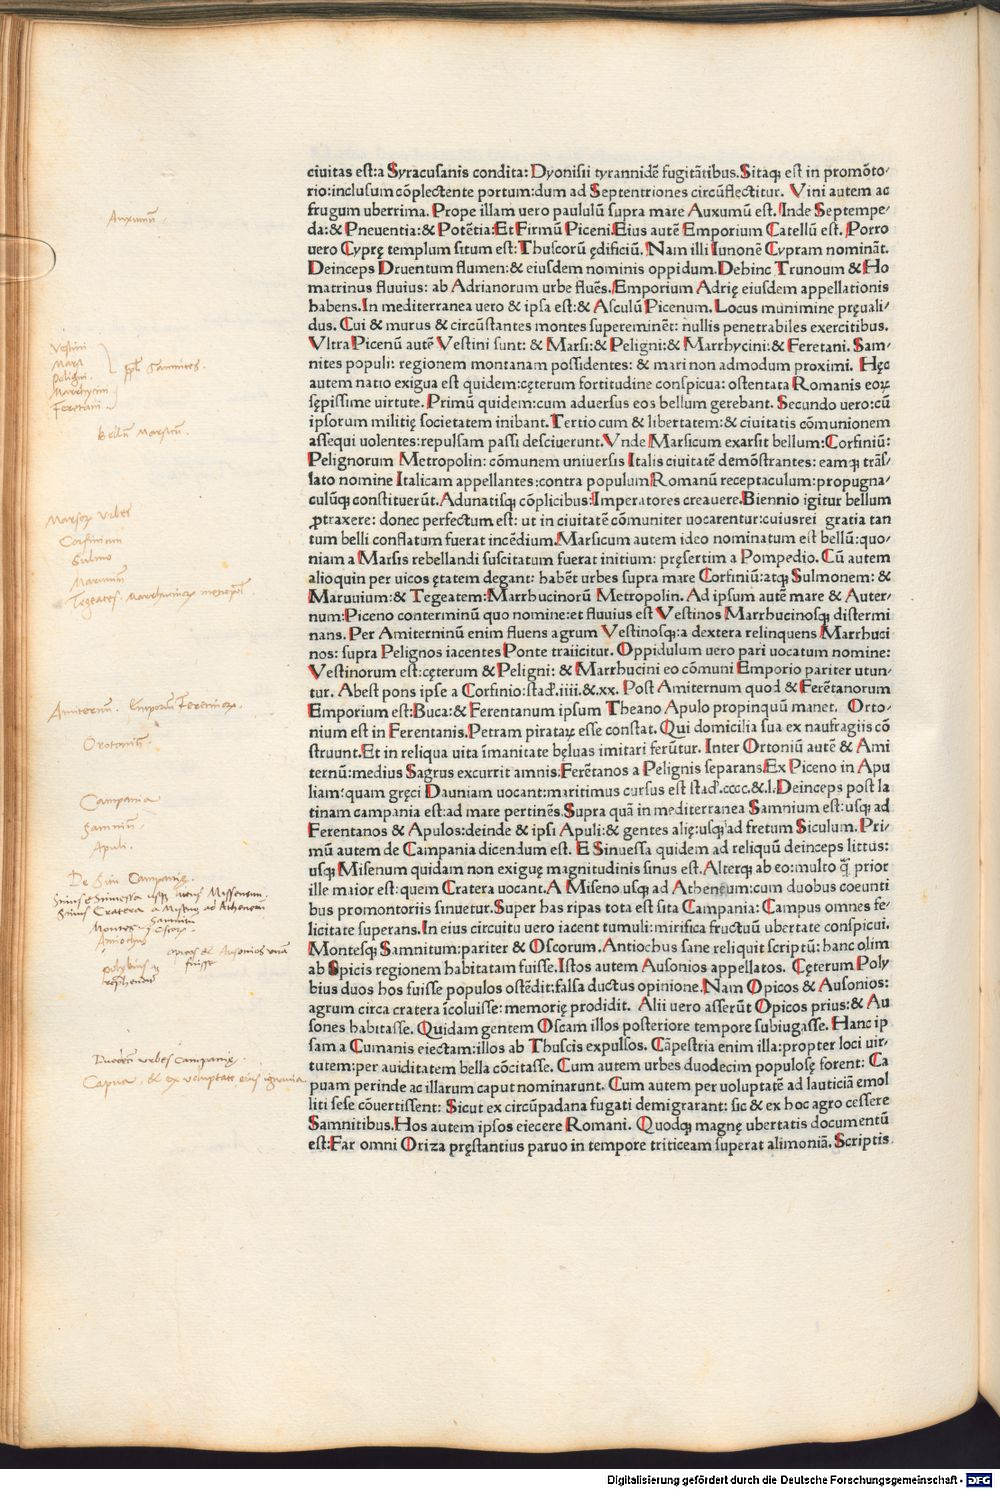 ciuitas est:a Syracusanis condita: Dyonisii tyrannidē fugitātibus. Sitaqꝫ est in promōto⸗
rio:inclusum cōplectente portum:dum ad Septentriones circūflectitur. Vini autem ac
frugum uberrima. Prope illam uero paululū supra mare Auxumū est. Inde Septempe⸗
da:& Pneuentia:& Potētia:Et Firmū Piceni.Eius autē Emporium Catellū est. Porro
uero Cyprę templum situm est: Thuscorū ędificiū. Nam illi Iunonē Cypram nomināt.
Deinceps Druentum flumen:& eiusdem nominis oppidum. Debinc Trunoum & Ho
matrinus fluuius: ab Adrianorum urbe fluēs. Emporium Adrię eiusdem appellationis
habens.In mediterranea uero & ipsa est:& Asculū Picenum. Locus munimine pręuali⸗
dus. Cui & murus & circūstantes montes supereminēt: nullis penetrabiles exercitibus.
Vltra Picenū autē Vestini sunt: & Marsi:& Peligni:& Marrhycini:& Feretani. Sam⸗
nites populi: regionem montanam possidentes: & mari non admodum proximi. Hęc
autem natio exigua est quidem:cęterum fortitudine conspicua: ostentata Romanis eoꝝ
sępissime uirtute. Primū quidem:cum aduersus eos bellum gerebant. Secundo uero:cū
ipsorum militię societatem inibant. Tertio cum & libertatem:& ciuitatis cōmunionem
assequi uolentes:repulsam passi desciuerunt. Vnde Marsicum exarsit bellum:Corfiniū:
Pelignorum Metropolin: cōmunem uniuersis Italis ciuitatē demōstrantes: eamqꝫ trās⸗
lato nomine Italicam appellantes:contra populum Romanū receptaculum:propugna⸗
culūqꝫ constituerūt. Adunatisqꝫ cōplicibus:Imperatores creauere. Biennio igitur bellum
ꝓtraxere: donec perfectum est: ut in ciuitatē cōmuniter uocarentur:cuius rei gratia tan
tum belli conflatum fuerat incēdium. Marsicum autem ideo nominatum est bellū:quo⸗
niam a Marsis rebellandi suscitatum fuerat initium: pręsertim a Pompedio. Cū autem
alioquin per uicos ętatem degant: habēt urbes supra mare Corfiniū:atqꝫ Sulmonem: &
Maruuium:& Tegeatem:Marrbucinorū Metropolim. Ad ipsum autē mare & Auter⸗
num:Piceno conterminū quo nomine:et fluuius est Vestinos Marrbucinosqꝫ distermi
nans. Per Amiterninū enim fluens agrum Vestinosqꝫ:a dextera relinquens Marrbuci
nos: supra Pelignos iacentes Ponte traiicitur. Oppidulum uero pari uocatum nomine:
Vestinorum est:cęterum & Peligni: & Marrbucini eo cōmuni Emporio pariter utun⸗
tur. Abest pons ipse a Corfinio:stad̄.iiii.&.xx. Post Amiternum quod & Ferētanorum
Emporium est:Buca:& Ferentanum ipsum Theano Apulo propinquū manet. Orto⸗
nium est in Ferentanis.Petram pirataꝝ esse constat. Qui domicilia sua ex naufragiis cō
struunt.Et in reliqua uita īmanitate bęluas imitari ferūtur. Inter Ortoniū autē & Ami
ternū:medius Sagrus excurrit amnis:Ferētanos a Pelignis separans. Ex Piceno in Apu
liam:quam gręci Dauniam uocant:maritimus cursus est stad̄.cccc.&.l. Deinceps post la
tinam campania est:ad mare pertinēs. Supra quā in mediterranea Samnium est:usqꝫ ad
Ferentanos & Apulos:deinde & ipsi Apuli:& gentes alię:usqꝫ ad fretum Siculum. Pri⸗
mū autem de Campania dicendum est. E Sinuessa quidem ad reliquū deinceps littus:
usqꝫ Misenum quidam non exiguę magnitudinis sinus est. Alterqꝫ ab eo:multo q̄ꝫ prior
ille maior est:quem Cratera uocant. A Miseno usqꝫ ad Atheneum:cum duobus coeunti
bus promontoriis sinuetur. Super has ripas tota est sita Campania: Campus omnes fe⸗
licitate superans. In eius circuitu uero iacent tumuli: mirifica fructuū ubertate conspicui.
Montesqꝫ Samnitum:pariter & Oscorum. Antiochus sane reliquit scriptū: hanc olim
ab Opicis regionem habitatam fuisse. Istos autem Ausonios appellatos. Cęterum Poly
bius duos hos fuisse populos ostēdit:falsa ductus opinione. Nam Opicos & Ausonios:
agrum circa cratera īcoluisse:memorię prodidit. Alii uero asserūt Opicos prius:& Au
sones habitasse. Quidam gentem Oscam illos posteriore tempore subiugasse. Hanc ip
sam a Cumanis eiectam:illos ab Thuscis expulsos. Cāpestria enim illa:propter loci uir⸗
tutem:per auiditatem bella cōcitasse. Cum autem urbes duodecim populosę forent: Ca
puam perinde ac illarum caput nominarunt. Cum autem per uoluptatē ad lauticiā emol
liti sese cōuertissent: Sicut ex circūpadana fugati demigrarant: sic & ex hoc agro cessere
Samnitibus. Hos autem ipsos eiecere Romani. Quodqꝫ magnę ubertatis documentū
est:Far omni Oriza pręstantius paruo in tempore triticeam superat alimoniā. Scriptis
Auxumū.
Vestini
Marsi
Peligni.
Marrhycini
Feretani.
ppl̄i Samnites.
Bellū Marsicū.
Marsoꝝ Vrbes
Corfinium
Sulmo
Maruuiū
Tegeates. Marrhucinoꝝ metropol̄.
Amiternū. Emporiū Ferentinoꝝ.
Campania
Samniū.
Apuli.
De Sinu Campanię.
Sinus Cratera a Miseno ad Atheneū
Montes
Samnitū
Oscoꝝ.
Antiochus
fuisse
polybius
Duodecī urbes Campanię.
Capua. & ex voluptate eius ignauia
Digitalisierung gefördert durch die Deutsche Forschungsgemeinschaft - DFG